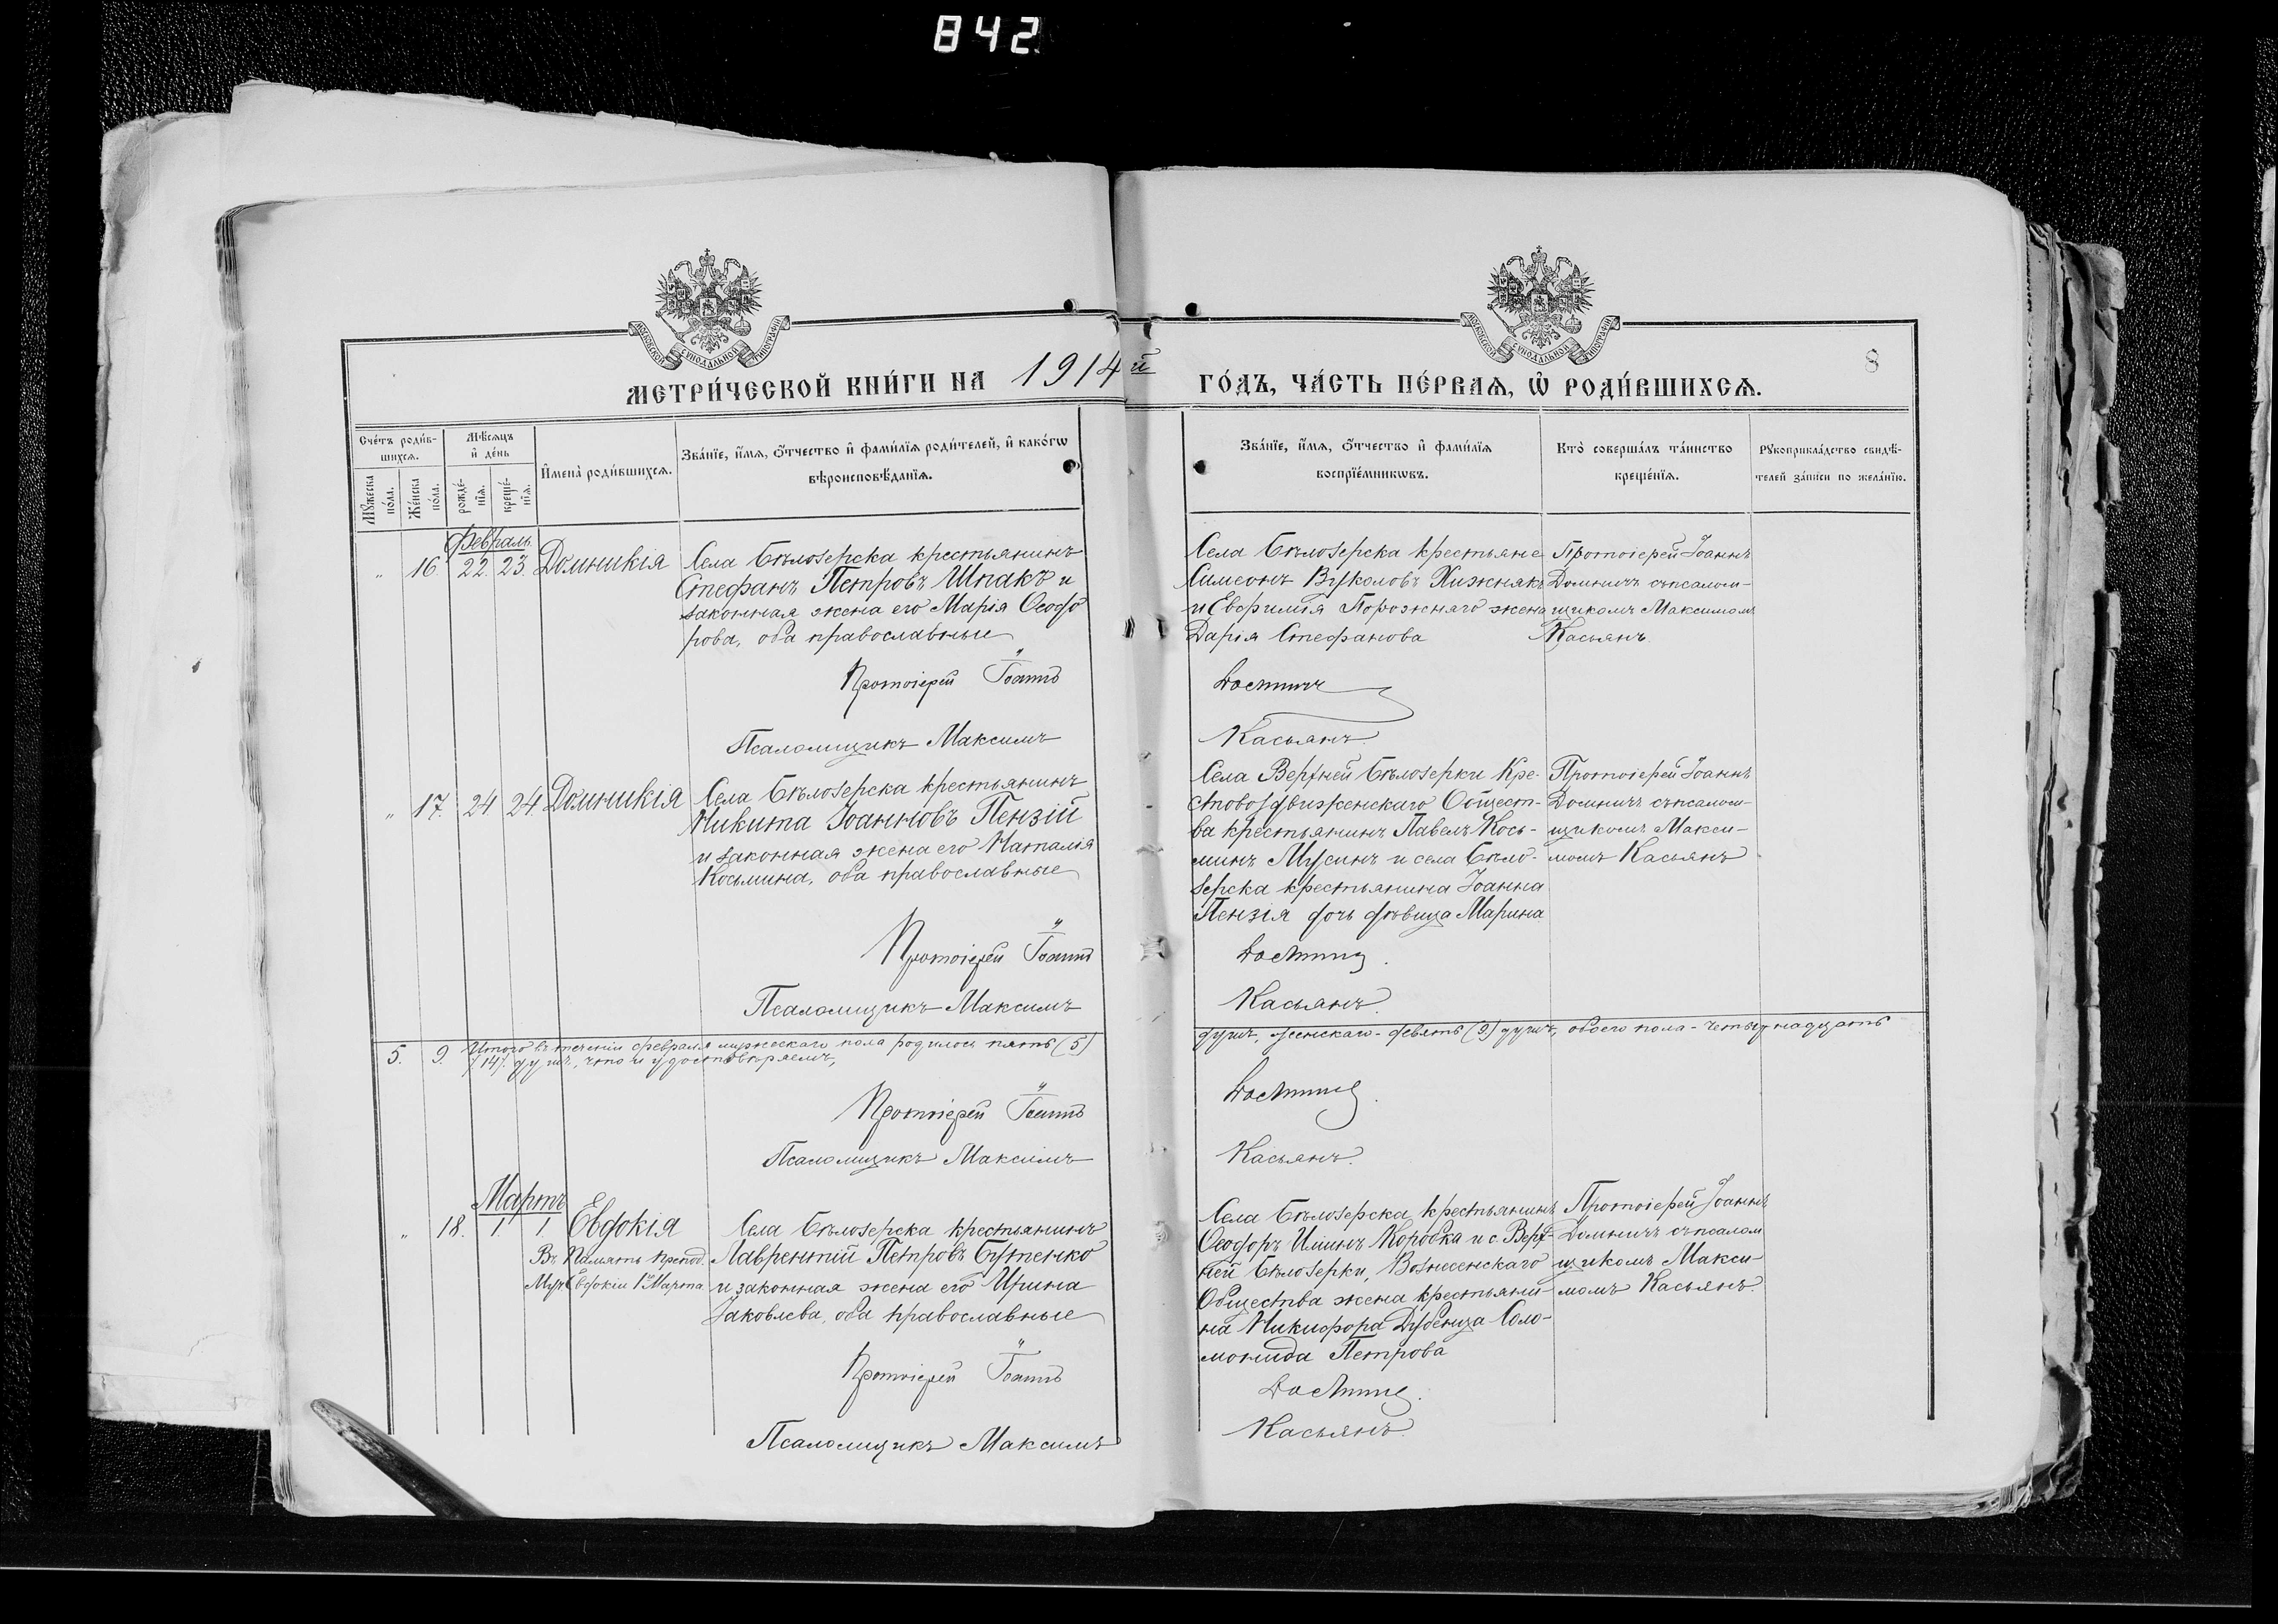 842
МОСКОВСКОЙ СѴНОДАЛЬНОЙ ТИПОГРАФІИ
МОСКОВСКОЙ СѴНОДАЛЬНОЙ ТИПОГРАФІИ
8
МЕТРИ́ЧЕСКОЙ КНИ́ГИ НА 1914 й ГО́ДЪ, ЧА́СТЬ ПЕ́РВАѦ, Ѡ҆ РОДИ́ВШИХСѦ.
Сче́тъ роди́в-
шихсѧ.
Мꙋ́жеска по́ла.
Же́нска по́ла.
Мѣ́сѧцъ
и҆ де́нь
рожде́-
нїѧ.
креще́-
нїѧ.
И҆мена̀ роди́вшихсѧ.
Зва́нїе, и҆́мѧ, ѻ҆́тчество и҆ фами́лїѧ роди́телей, и҆ како́гѡ
вѣроисповѣ́данїѧ.
Зва́нїе, и҆́мѧ, ѻ҆́тчество и҆ фами́лїѧ
воспрїе́мникѡвъ.
Кто̀ соверша́лъ та́инство
креще́нїѧ.
Рꙋкоприкла́дство свидѣ́-
телей за́писи по жела́нїю.
Февраль.
" 16. 22. 23. Домникія
Села Бѣлозерска крестьянинъ
Стефанъ Петровъ Шпакъ и
законная жена его Марія Ѳеодо
рова, оба православные
Протоіерей Іоаннъ
Псаломщикъ Максимъ
Села Бѣлозерска крестьяне
Симеонъ Вуколовъ Хижнякъ
и Евфимія Порожняго жена
Дарія Стефанова
Касьянъ.
Протоіерей Іоаннъ
съ псалом-
щикомъ Максимомъ
Касьянъ.
" 17. 24. 24. Домникія
Села Бѣлозерска крестьянинъ
Никита Іоанновъ Пензій
и законная жена его Наталія
Косьмина, оба православные
Протоіерей Іоаннъ
Псаломщикъ Максимъ
Села Верхней Бѣлозерки Кре-
стовоздвиженскаго Общест-
ва крестьянинъ Павелъ Кось-
минъ и села Бѣло-
зерска крестьянина Іоанна
Пензія дочь дѣвица Марина
Касьянъ.
Протоіерей Іоаннъ
съ псалом-
щикомъ Макси-
момъ Касьянъ
5. 9. Итого въ теченіи февраля мужескаго пола родилось пять (5) душъ, женскаго - девять (9) душъ, обоего пола - четырнадцать
/14/. душъ, что и удостовѣряемъ,
Протоіерей Іоаннъ
Псаломщикъ Максимъ
Касьянъ.
Мартъ
" 18. 1. 1. Евдокія
Въ память препод.
Муч. Евдокіи 1го Марта
Села Бѣлозерска крестьянинъ
Лаврентій Петровъ Бутенко
и законная жена его Ирина
Іаковлева, оба православные
Протоіерей Іоаннъ
Псаломщикъ Максимъ
Села Бѣлозерска крестьянинъ
Ѳеодоръ Коробка и с. Верх-
ней Бѣлозерки, Вознесенскаго
Общества жена крестьяни-
на Никифора Дубенца Соло-
монида Петрова
Касьянъ.
Протоіерей Іоаннъ
съ псалом
щикомъ Макси-
момъ Касьянъ.